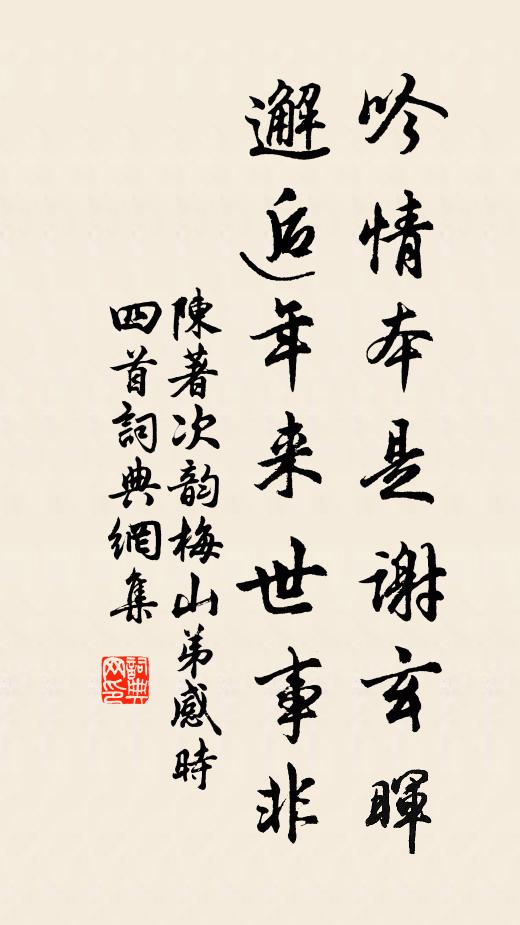 吟情本是谢玄暉
邂逅年来世事非
陳著次韵梅山弟感時
四首詞典網集
詞典
网印